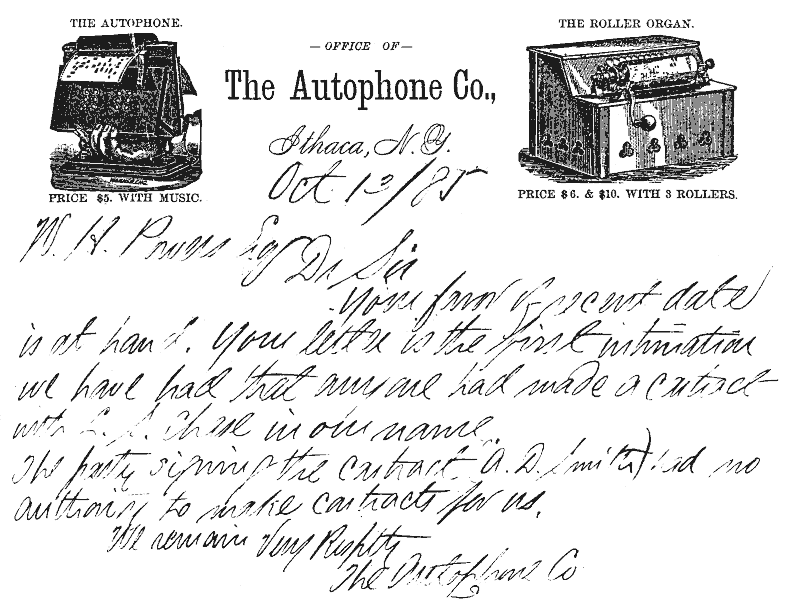 THE AUTOPHONE.
PRICE $5. WITH MUSIC.
— OFFICE OF —
The Autophone Co.,
Ithaca, N.Y.
THE ROLLER ORGAN.
PRICE $6. & $10. WITH 3 ROLLERS.
Oct 13/85
W. H. Powers Esq
Dr Sir
Your favor of recent date
is at hand. Your letter is the first intimation
we have had that anyone had made a contract
with L. Chase in our name.
The party signing the contract (A. D. Smith) had no
authority to make contracts for us.
We remain Very Respftly
The Autophone Co